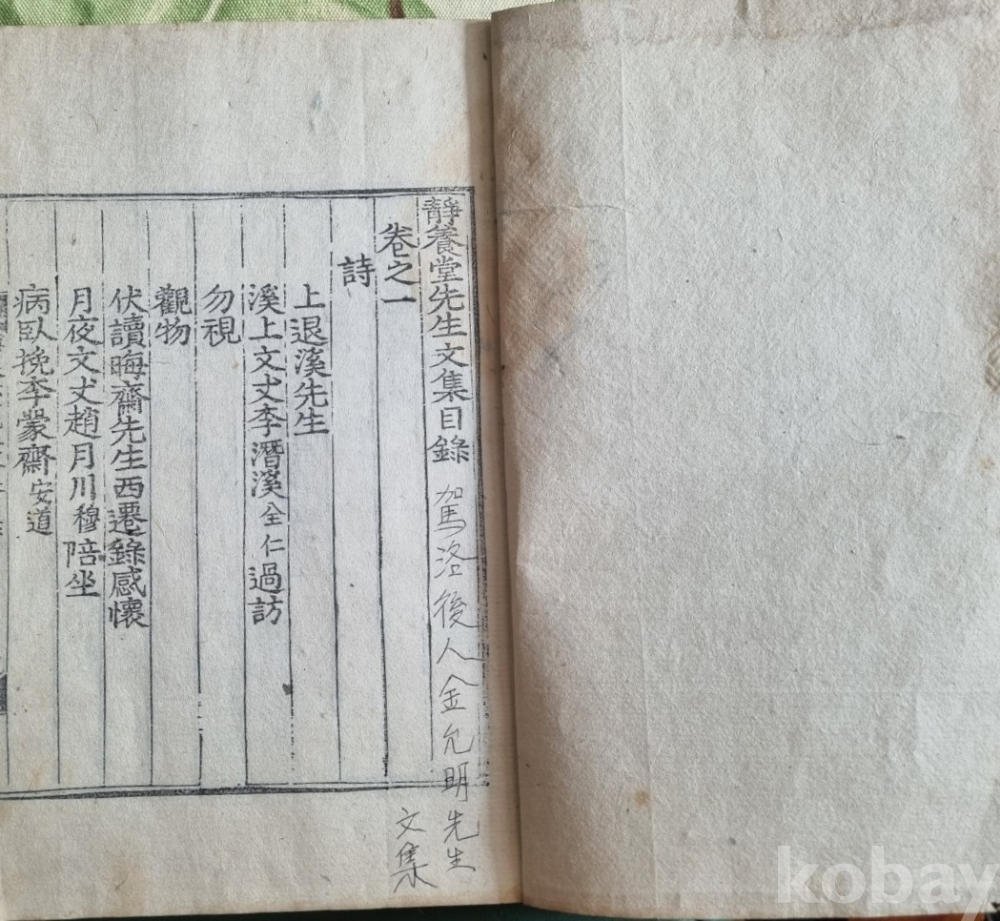 靜養堂先生文集目錄 駕洛後人金允明先生
文集
卷之一
詩
上退溪先生
溪上文丈李潛溪全仁過訪
勿視
觀物
伏讀晦齋先生西遷錄感懷
月夜文丈趙月川穆陪坐
病臥挽李蒙齋安道
kobay